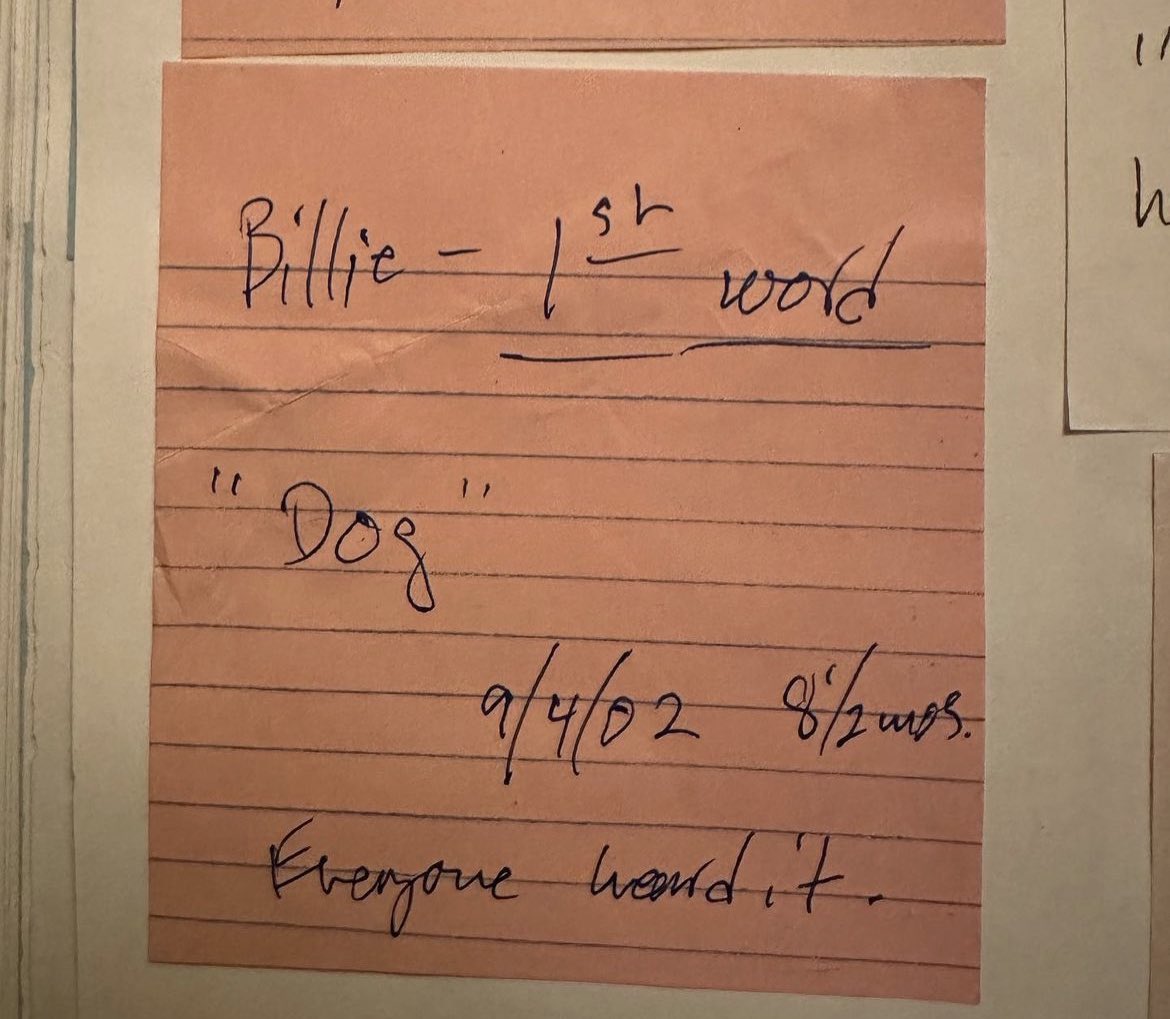 Billie - 1st word
"Dog"
9/4/02 8 1/2 mos.
Everyone heard it.